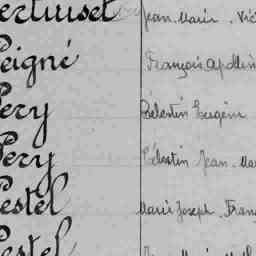 Jean Marie . Vic
eigné François Apollin
ery Célestin Eugène
ery Célestin Jean . Ma
estel Marie Joseph . Franç
estel